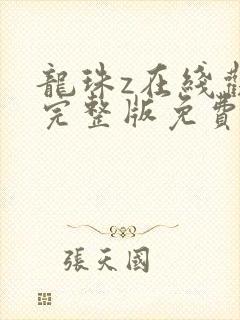 龍珠z在綫
完整版免費
張天國